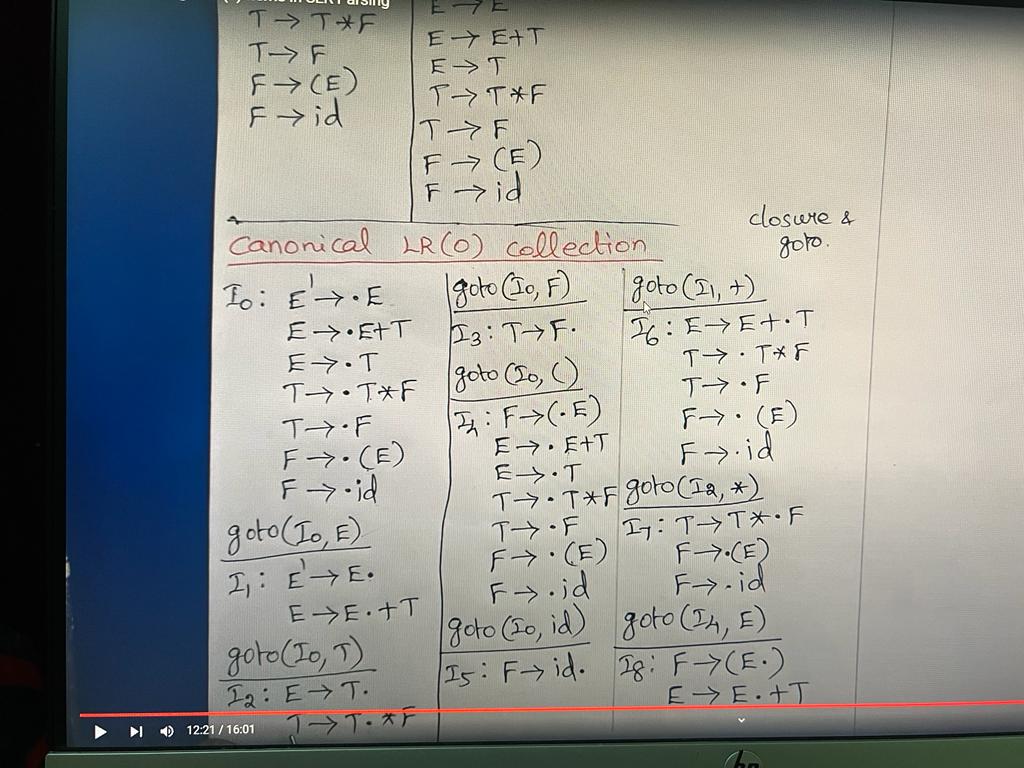 T → T*F
T → F
F → (E)
F → id
E → E+T
E → T
T → T*F
T → F
F → (E)
F → id
closure &
goto.
Canonical LR(0) collection
I0: E' → ·E
E → ·E+T
E → ·T
T → ·T*F
T → ·F
F → ·(E)
F → ·id
goto(I0, E)
I1: E' → E·
E → E·+T
goto(I0, T)
I2: E → T·
T → T·*F
goto(I0, F)
I3: T → F·
goto(I0, ()
I4: F → (·E)
E → ·E+T
E → ·T
T → ·T*F
T → ·F
F → ·(E)
F → ·id
goto(I0, id)
I5: F → id·
goto(I1, +)
I6: E → E+·T
T → ·T*F
T → ·F
F → ·(E)
F → ·id
goto(I2, *)
I7: T → T*·F
F → ·(E)
F → ·id
goto(I4, E)
I8: F → (E·)
E → E·+T
12:21 / 16:01
hp